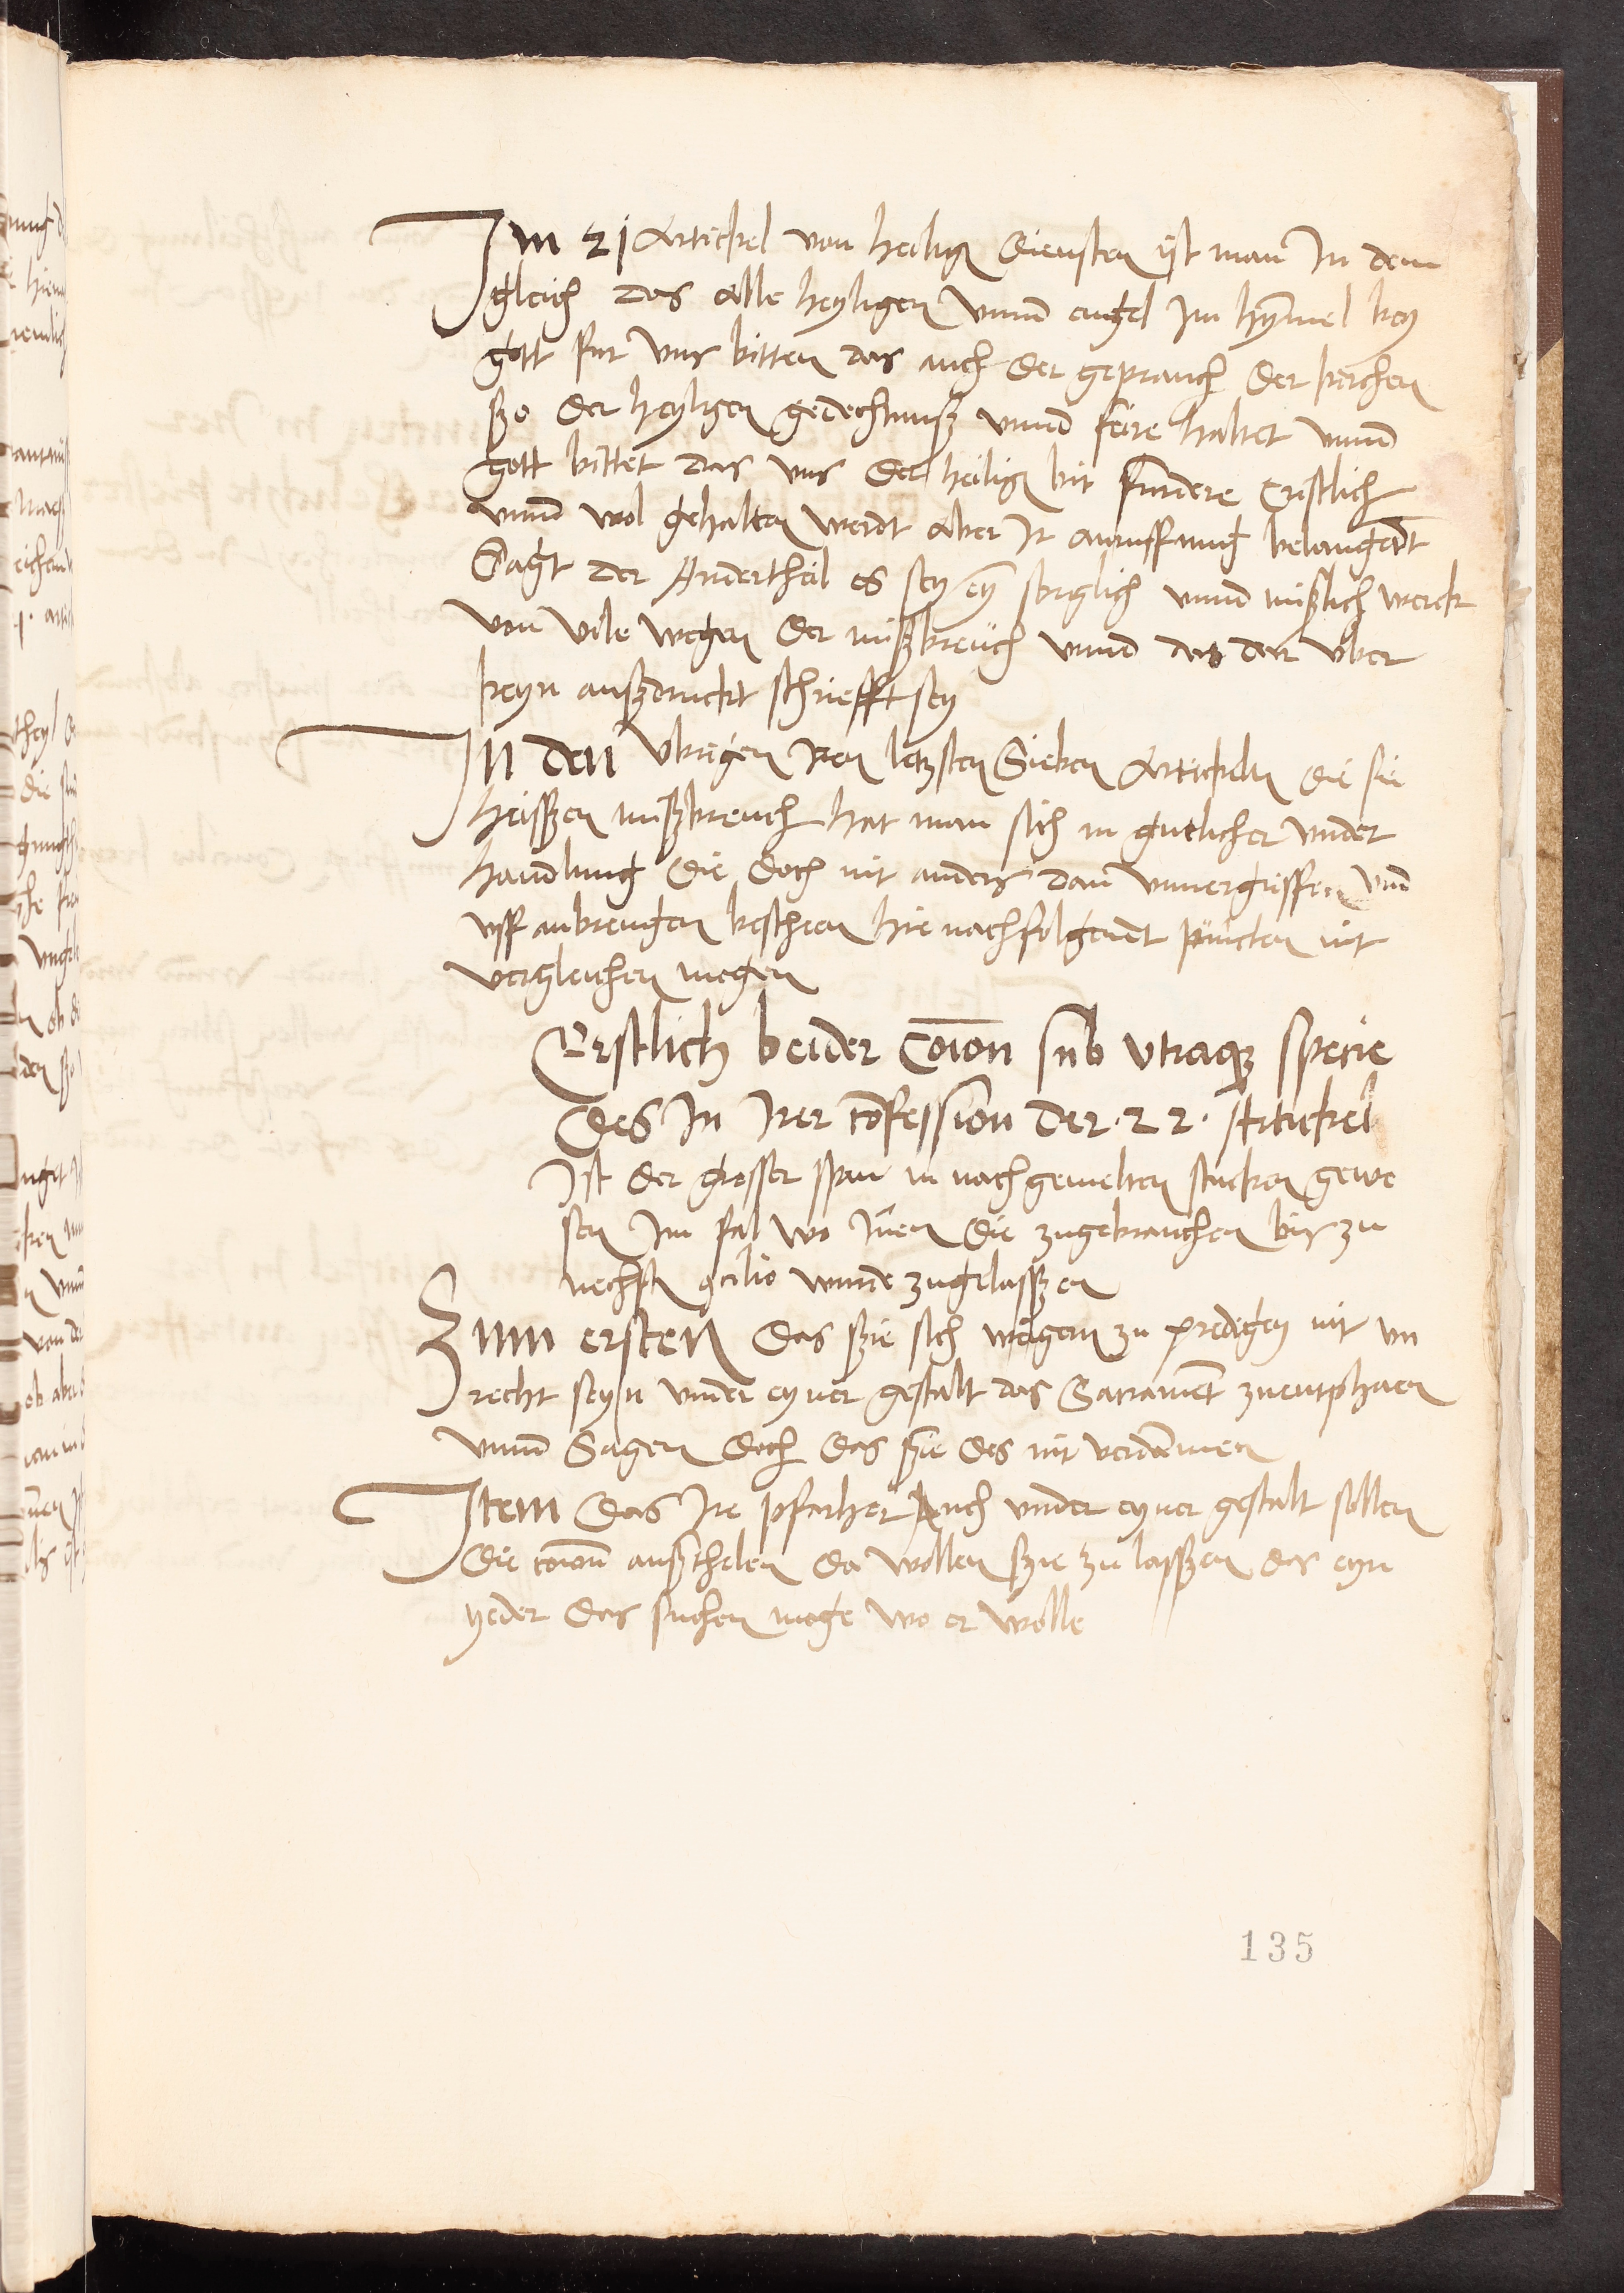 Im 21 Artickel von heilig diensten ist man In dem
gleich das Alle heyligen vnnd engel Im hymel bey
gott fur vns bitten das auch der geprauch der kerchen
ßo der heyligen gedechtnuß vnnd feire haltet vnnd
gott bittet das vns der heilig bit furdere Cristlich
vnnd wol gehalten werdt Aber Ir anruffung belangent
Sagt der Andertheil es sey eyn sorglich vnnd mißlich werck
von vile wegen der mißbreuch vnnd das dar vber
keyn außdruckt schriefft sey
In den vbrigen Iren letzsten Sieben Artickeln die sie
heissen mißbreuch hat man sich in gutlicher vnder
handlung die doch nit anders dan vnuergriffen vnd
vff anbrengen beschen hie nachfolgendt puncten nit
vergleichen megen
Erstlich beider Coion sub vtraq specie
des In Irer cofession der .22. Artickel
Ist der grosser span in nachgemelten stucken gewe
sen Im fal wo Inen die zugebrauchen bis zu
nechst cilio wurde zugelassen
Zum ersten das ßie sich weigern zu predigen nit vn
recht seyn vnder eyner gestalt das Sacrament zuentphaen
vnnd Sagen doch das ßie des nit verdamen
Item das Ire pfarher Auch vnder eyner gestalt sollen
die coion außthelen da wollen ßie zu lassen das eyn
yeder das suchen moge wo er wolle
135